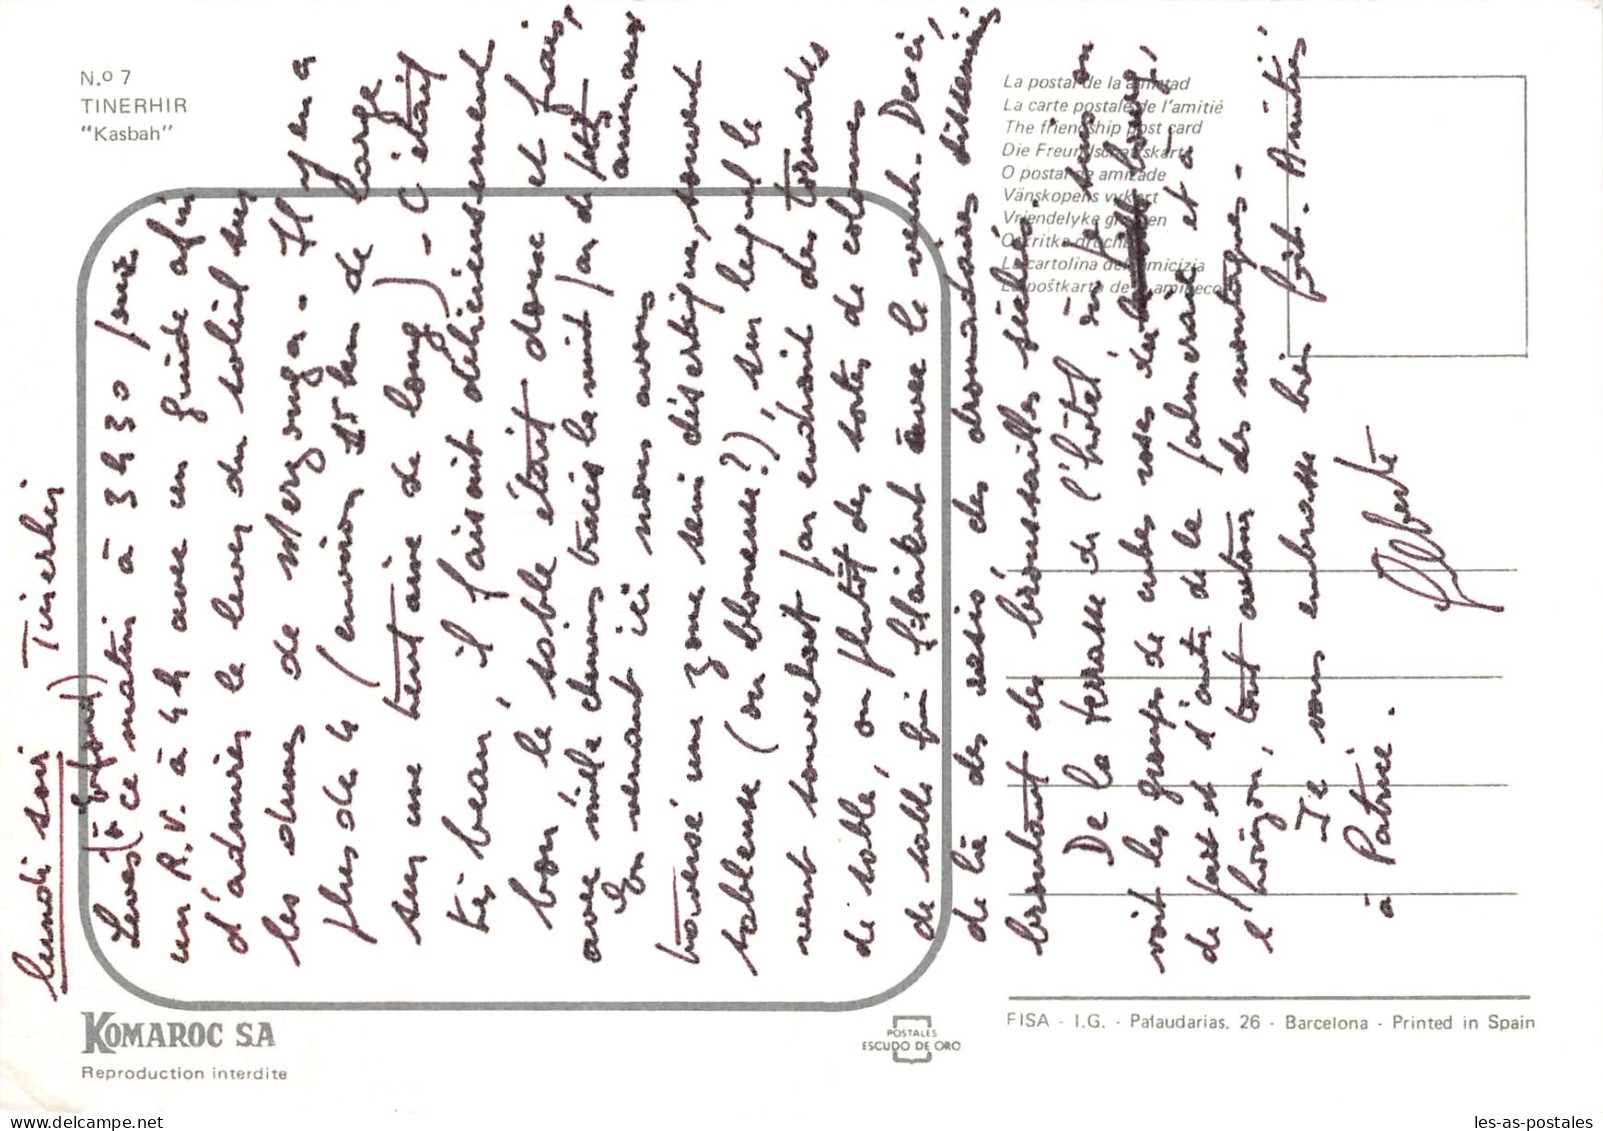 N.º 7
TINERHIR
"Kasbah"
La postal de la amistad
La carte postale de l'amitié
The friendship post card
Die Freundschaftskarte
O postal de amizade
Vänskopens vykort
Vriendelyke groeten
Otkritka druchbi
La cartolina dell'amicizia
La poŝtkarto de la amikeco
lundi soir Tinerhir
(à Erfoud)
Levés (ce matin à 3h30 pour
un R.V. à 4h avec un guide afin
d'admirer le lever du soleil sur
les dunes de Merzouga. Il y en a
plus de 4 (environ 15 km de large
sur une trentaine de long) - C'était
très beau, il faisait délicieusement
bon, le sable était doux et frais,
avec mille chemins tracés la nuit par de petits animaux
En venant ici nous avons
traversé une zone semi désertique, souvent
sableuse (ou blonneuse?), sur lequel le
vent soulevait par endroit des tornades
de sable, ou plutôt des sortes de colonnes
de sable fin filant avec le vent. De ci,
de là des semis de dromadaires disséminés
broutant des broussailles séchées.
De la terrasse de l'hôtel où je suis on
voit les groupes de cubes roses du
de part et d'autre de la palmeraie et à
l'horizon, tout autour des montagnes.
Je vous embrasse bien fort. Amitiés
à Patrice.
KOMAROC S.A
Reproduction interdite
POSTALES
ESCUDO DE ORO
FISA - I.G. - Palaudarias, 26 - Barcelona - Printed in Spain
les-as-postales